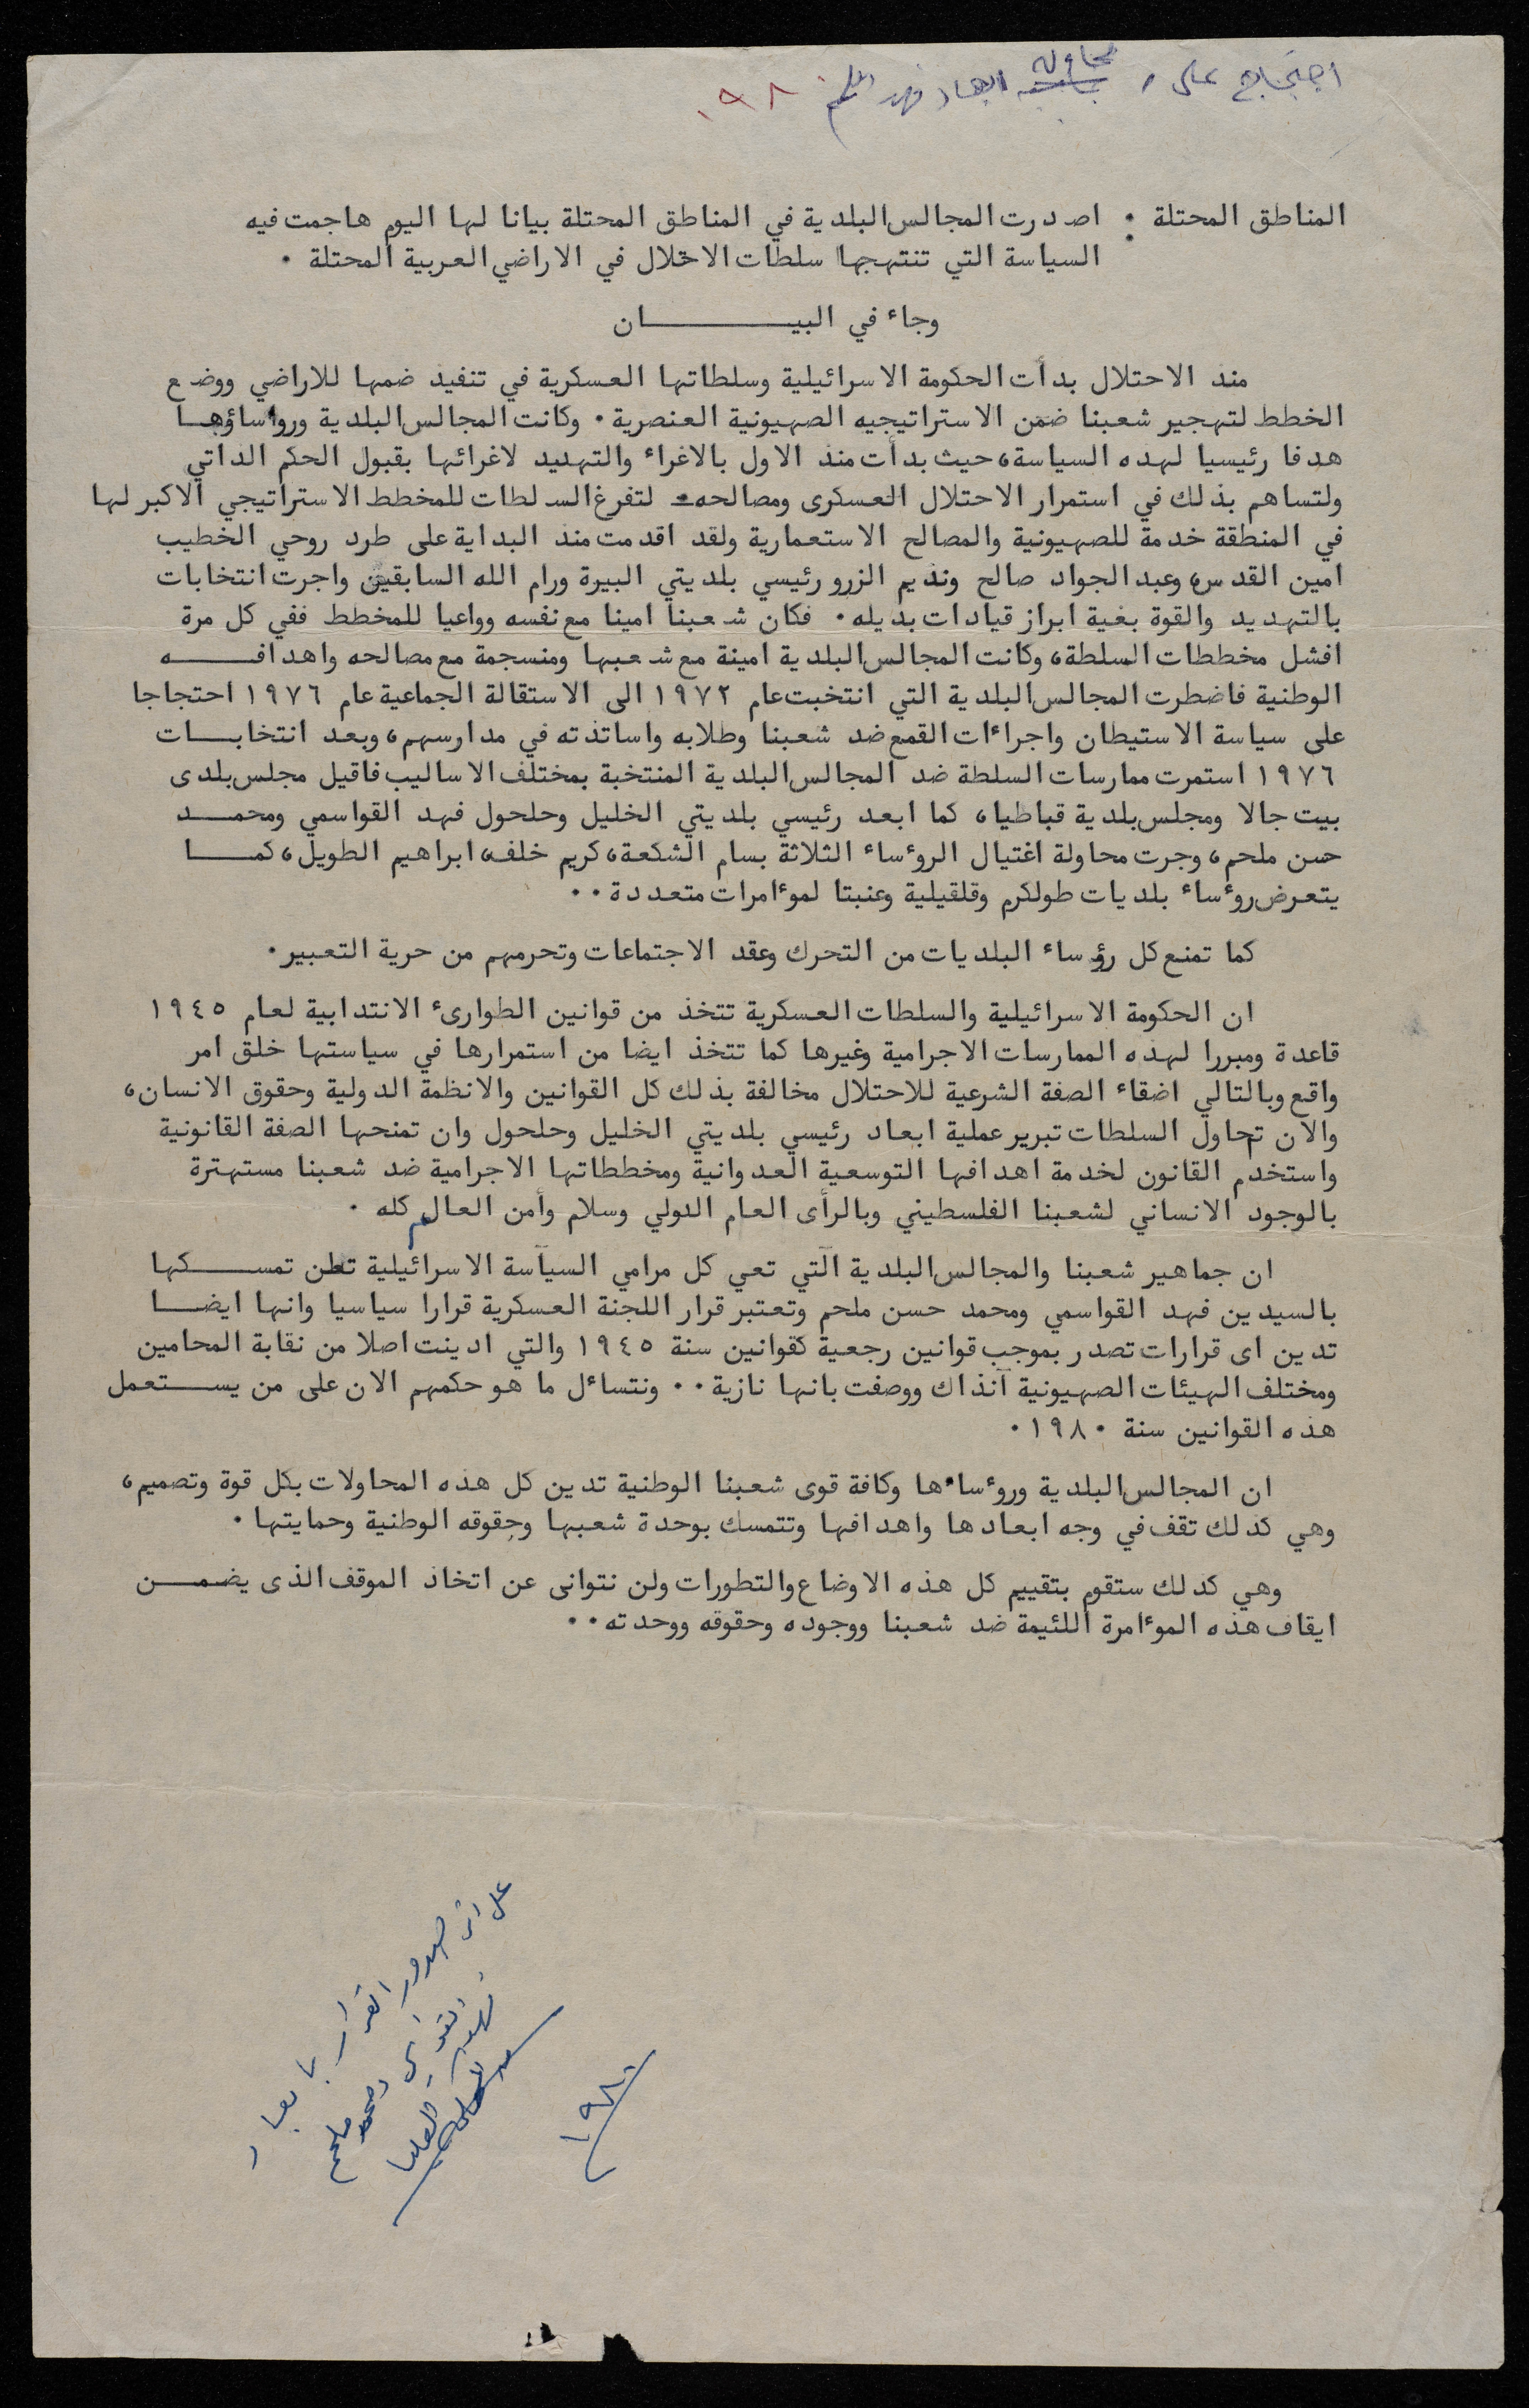 احتجاج على محاولة ابعاد فهد ملحم ١٩٨٠
المناطق المحتلة : اصدرت المجالس البلدية في المناطق المحتلة بيانا لها اليوم هاجمت فيه
السياسة التي تنتهجها سلطات الاحتلال في الاراضي العربية المحتلة ٠
وجاء في البيـــــــان
منذ الاحتلال بدأت الحكومة الاسرائيلية وسلطاتها العسكرية في تنفيذ ضمها للاراضي ووضع
الخطط لتهجير شعبنا ضمن الاستراتيجيه الصهيونية العنصرية ٠ وكانت المجالس البلدية ورواساؤها
هدفا رئيسيا لهده السياسة، حيث بدأت منذ الاول بالاغراء والتهديد لاغرائها بقبول الحكم الداتي
ولتساهم بذلك في استمرار الاحتلال العسكرى ومصالحه لتفرغ السلطات للمخطط الاستراتيجي الاكبر لها
في المنطقة خدمة للصهيونية والمصالح الاستعمارية ولقد اقدمت منذ البداية على طرد روحي الخطيب
امين القدس، وعبد الجواد صالح ونديم الزرو رئيسي بلديتي البيرة ورام الله السابقين واجرت انتخابات
بالتهديد والقوة بغية ابراز قيادات بديله ٠ فكان شعبنا امينا مع نفسه وواعيا للمخطط ففي كل مرة
افشل مخططات السلطة، وكانت المجالس البلدية امينة مع شعبها ومنسجمة مع مصالحه واهدافـــه
الوطنية فاضطرت المجالس البلدية التي انتخبت عام ١٩٧٢ الى الاستقالة الجماعية عام ١٩٧٦ احتجاجا
على سياسة الاستيطان واجراءات القمع ضد شعبنا وطلابه واساتذته في مدارسهم، وبعد انتخابـــات
١٩٧٦ استمرت ممارسات السلطة ضد المجالس البلدية المنتخبة بمختلف الاساليب فاقيل مجلس بلدى
بيت جالا ومجلس بلدية قباطيا، كما ابعد رئيسي بلديتي الخليل وحلحول فهد القواسمي ومحمـــد
حسن ملحم، وجرت محاولة اغتيال الروٴساء الثلاثة بسام الشكعة، كريم خلف، ابراهيم الطويل، كمـــا
يتعرض روٴساء بلديات طولكرم وقلقيلية وعنبتا لموٴامرات متعددة ٠٠
كما تمنع كل رؤساء البلديات من التحرك وعقد الاجتماعات وتحرمهم من حرية التعبير ٠
ان الحكومة الاسرائيلية والسلطات العسكرية تتخذ من قوانين الطوارىٴ الانتدابية لعام ١٩٤٥
قاعدة ومبررا لهذه الممارسات الاجرامية وغيرها كما تتخذ ايضا من استمرارها في سياستها خلق امر
واقع وبالتالي اضقاء الصفة الشرعية للاحتلال مخالفة بذلك كل القوانين والانظمة الدولية وحقوق الانسان،
والان تحاول السلطات تبرير عملية ابعاد رئيسي بلديتي الخليل وحلحول وان تمنحها الصفة القانونية
واستخدم القانون لخدمة اهدافها التوسعية العدوانية ومخططاتها الاجرامية ضد شعبنا مستهترة
بالوجود الانساني لشعبنا الفلسطيني وبالرأى العام الدولي وسلام وأمن العالم كله ٠
ان جماهير شعبنا والمجالس البلدية التي تعي كل مرامي السياسة الاسرائيلية تعلن تمســـكها
بالسيدين فهد القواسمي ومحمد حسن ملحم وتعتبر قرار اللجنة العسكرية قرارا سياسيا وانها ايضـــا
تدين اى قرارات تصدر بموجب قوانين رجعية كقوانين سنة ١٩٤٥ والتي ادينت اصلا من نقابة المحامين
ومختلف الهيئات الصهيونية آنذاك ووصفت بانها نازية ٠٠ ونتساءل ما هو حكمهم الان على من يســـتعمل
هذه القوانين سنة ١٩٨٠ ٠
ان المجالس البلدية وروٴساءها وكافة قوى شعبنا الوطنية تدين كل هذه المحاولات بكل قوة وتصميم،
وهي كذلك تقف في وجه ابعادها واهدافها وتتمسك بوحدة شعبها وحقوقه الوطنية وحمايتها ٠
وهي كذلك ستقوم بتقييم كل هذه الاوضاع والتطورات ولن نتوانى عن اتخاذ الموقف الذى يضمـــن
ايقاف هذه الموٴامرة اللئيمة ضد شعبنا ووجوده وحقوقه ووحدته ٠٠
على اثر صدور القرار بابعاد
فهد القواسمي ومحمد ملحم
العليا
١٩٨٠